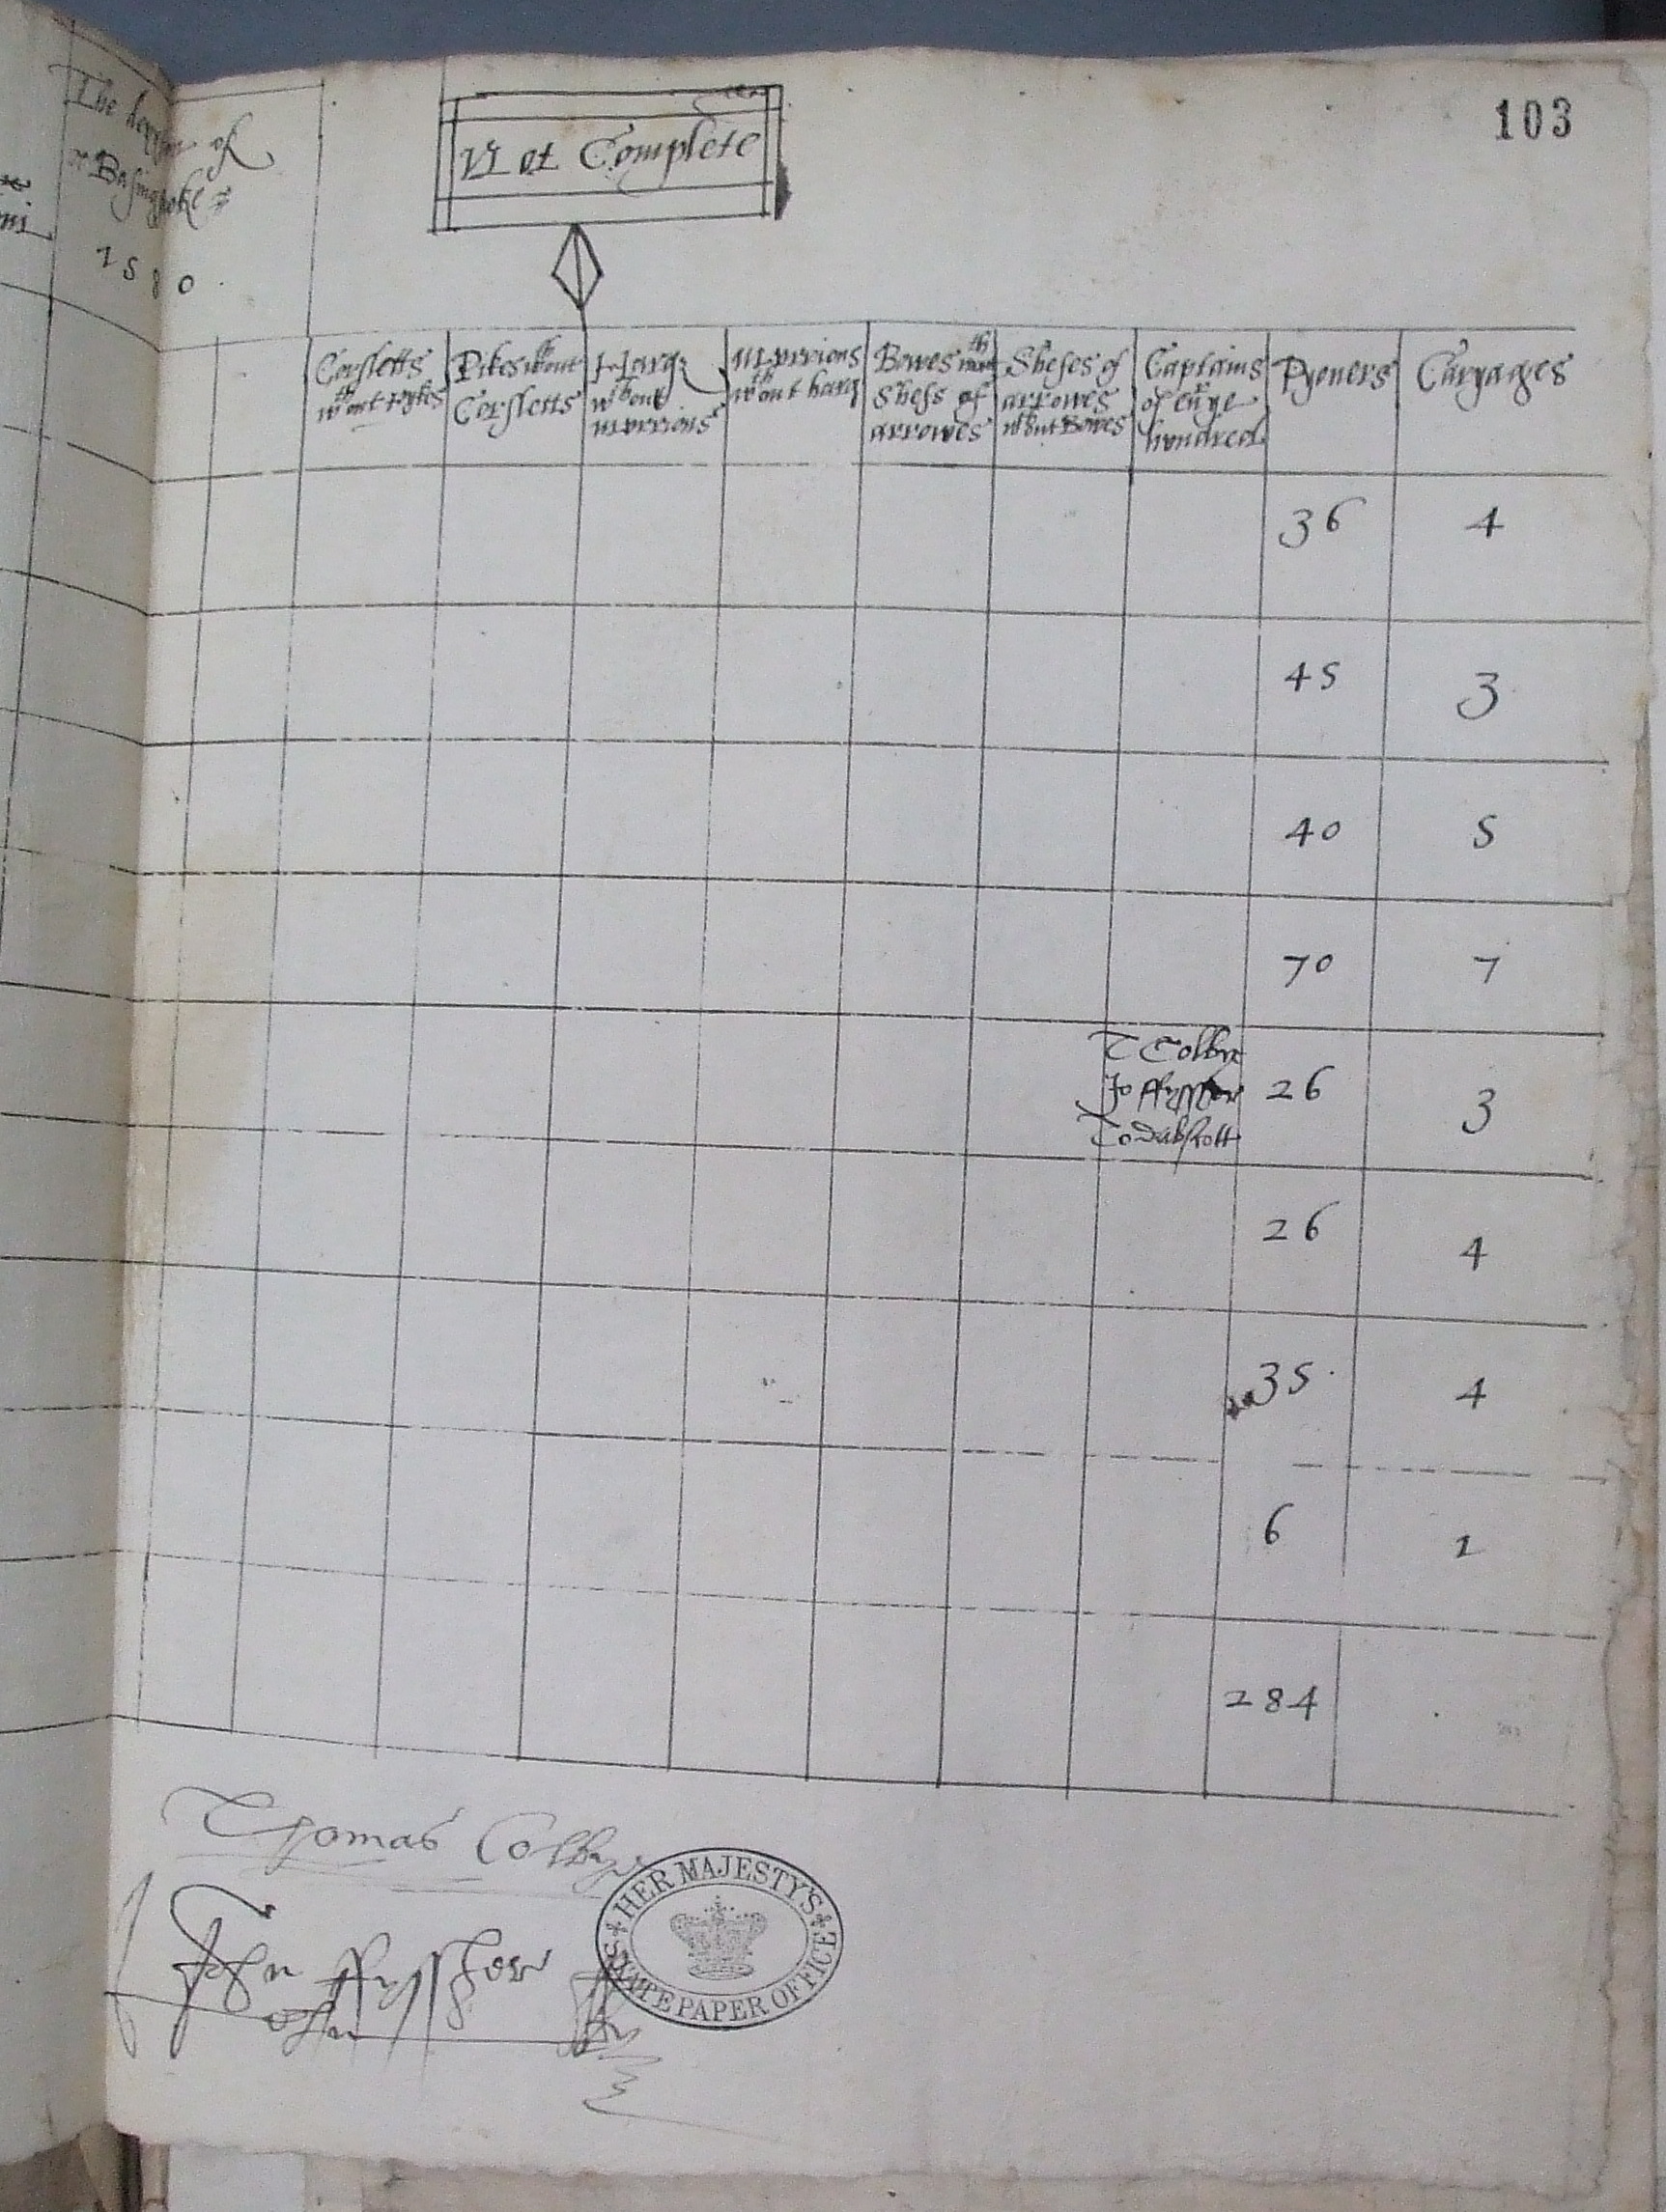 103
The of
Basingstoke
1580
Vi et Complete
Corsletts
wthout pykes
Pikes wthout
Corsletts
Harq
wthout
murrions
murrions
wthout harq
Bowes wth
Shefs of
arrowes
Shefes of
arrowes
wthout Bowes
Captains
of eu'ye
hundred
Pyoners
Caryages
36 4
45 3
40 5
70 7
T Colbye
Jo
26 3
26 4
35 4
6 1
284
Thomas Colbye
John
HER MAJESTY'S
STATE PAPER OFFICE